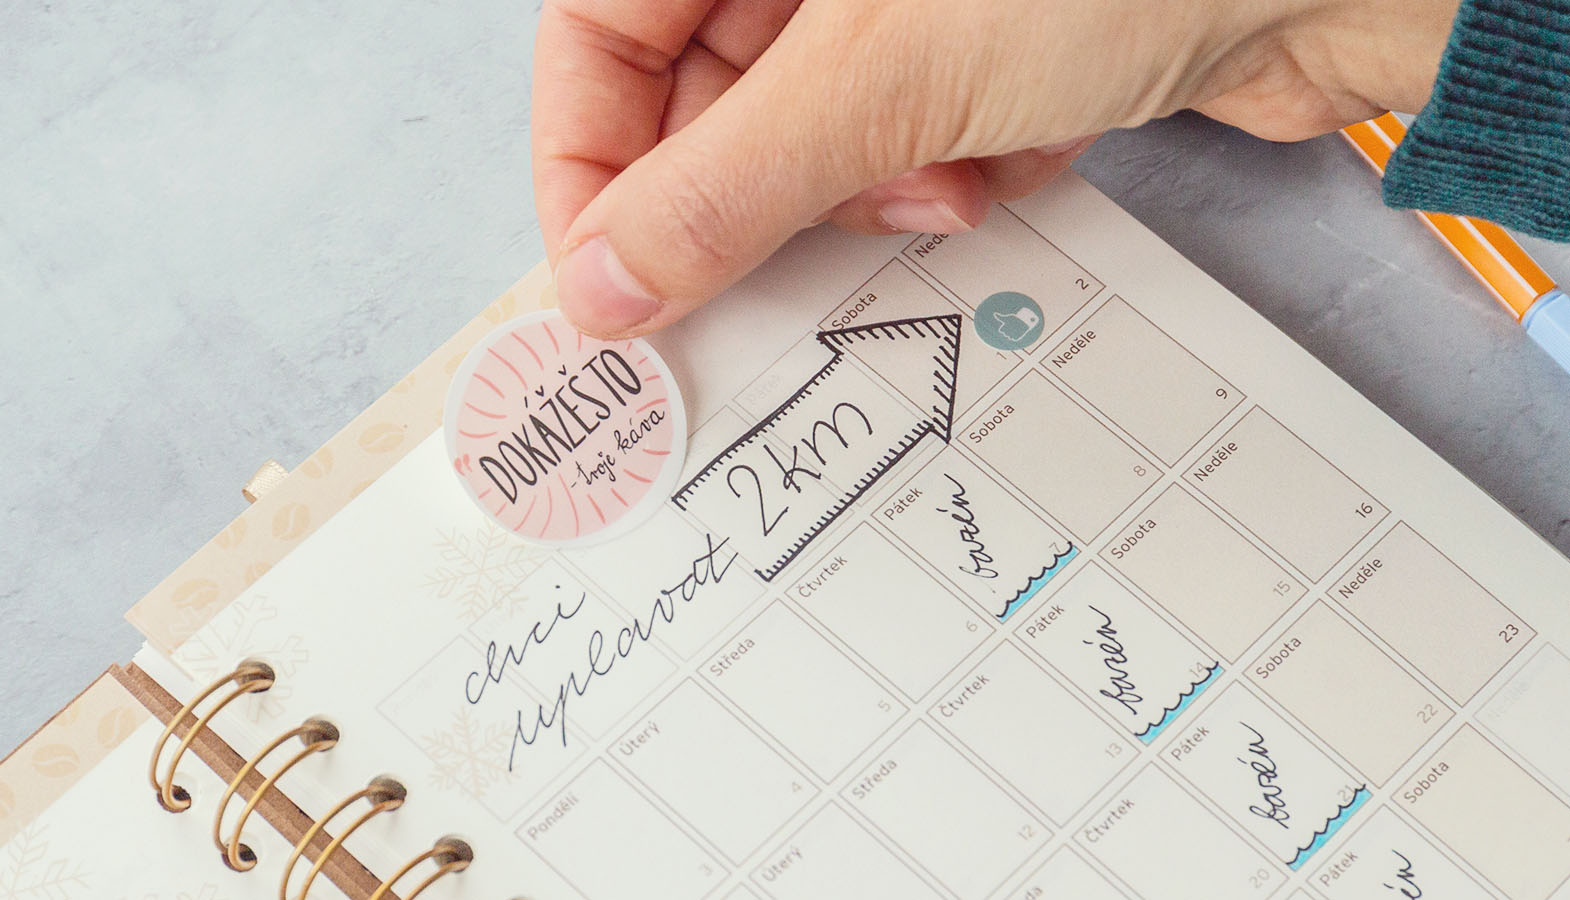 DOKÁŽEŠ TO
- tvoje káva
chci
uplavat
2km
Neděle
2
Sobota
1
Pátek
Neděle
9
Sobota
8
Pátek
bazén
7
Čtvrtek
6
Středa
5
Úterý
4
Pondělí
3
Neděle
16
Sobota
15
Pátek
bazén
14
Čtvrtek
13
Středa
12
Úterý
Neděle
23
Sobota
22
Pátek
bazén
21
Čtvrtek
20
Neděle
Sobota
Pátek